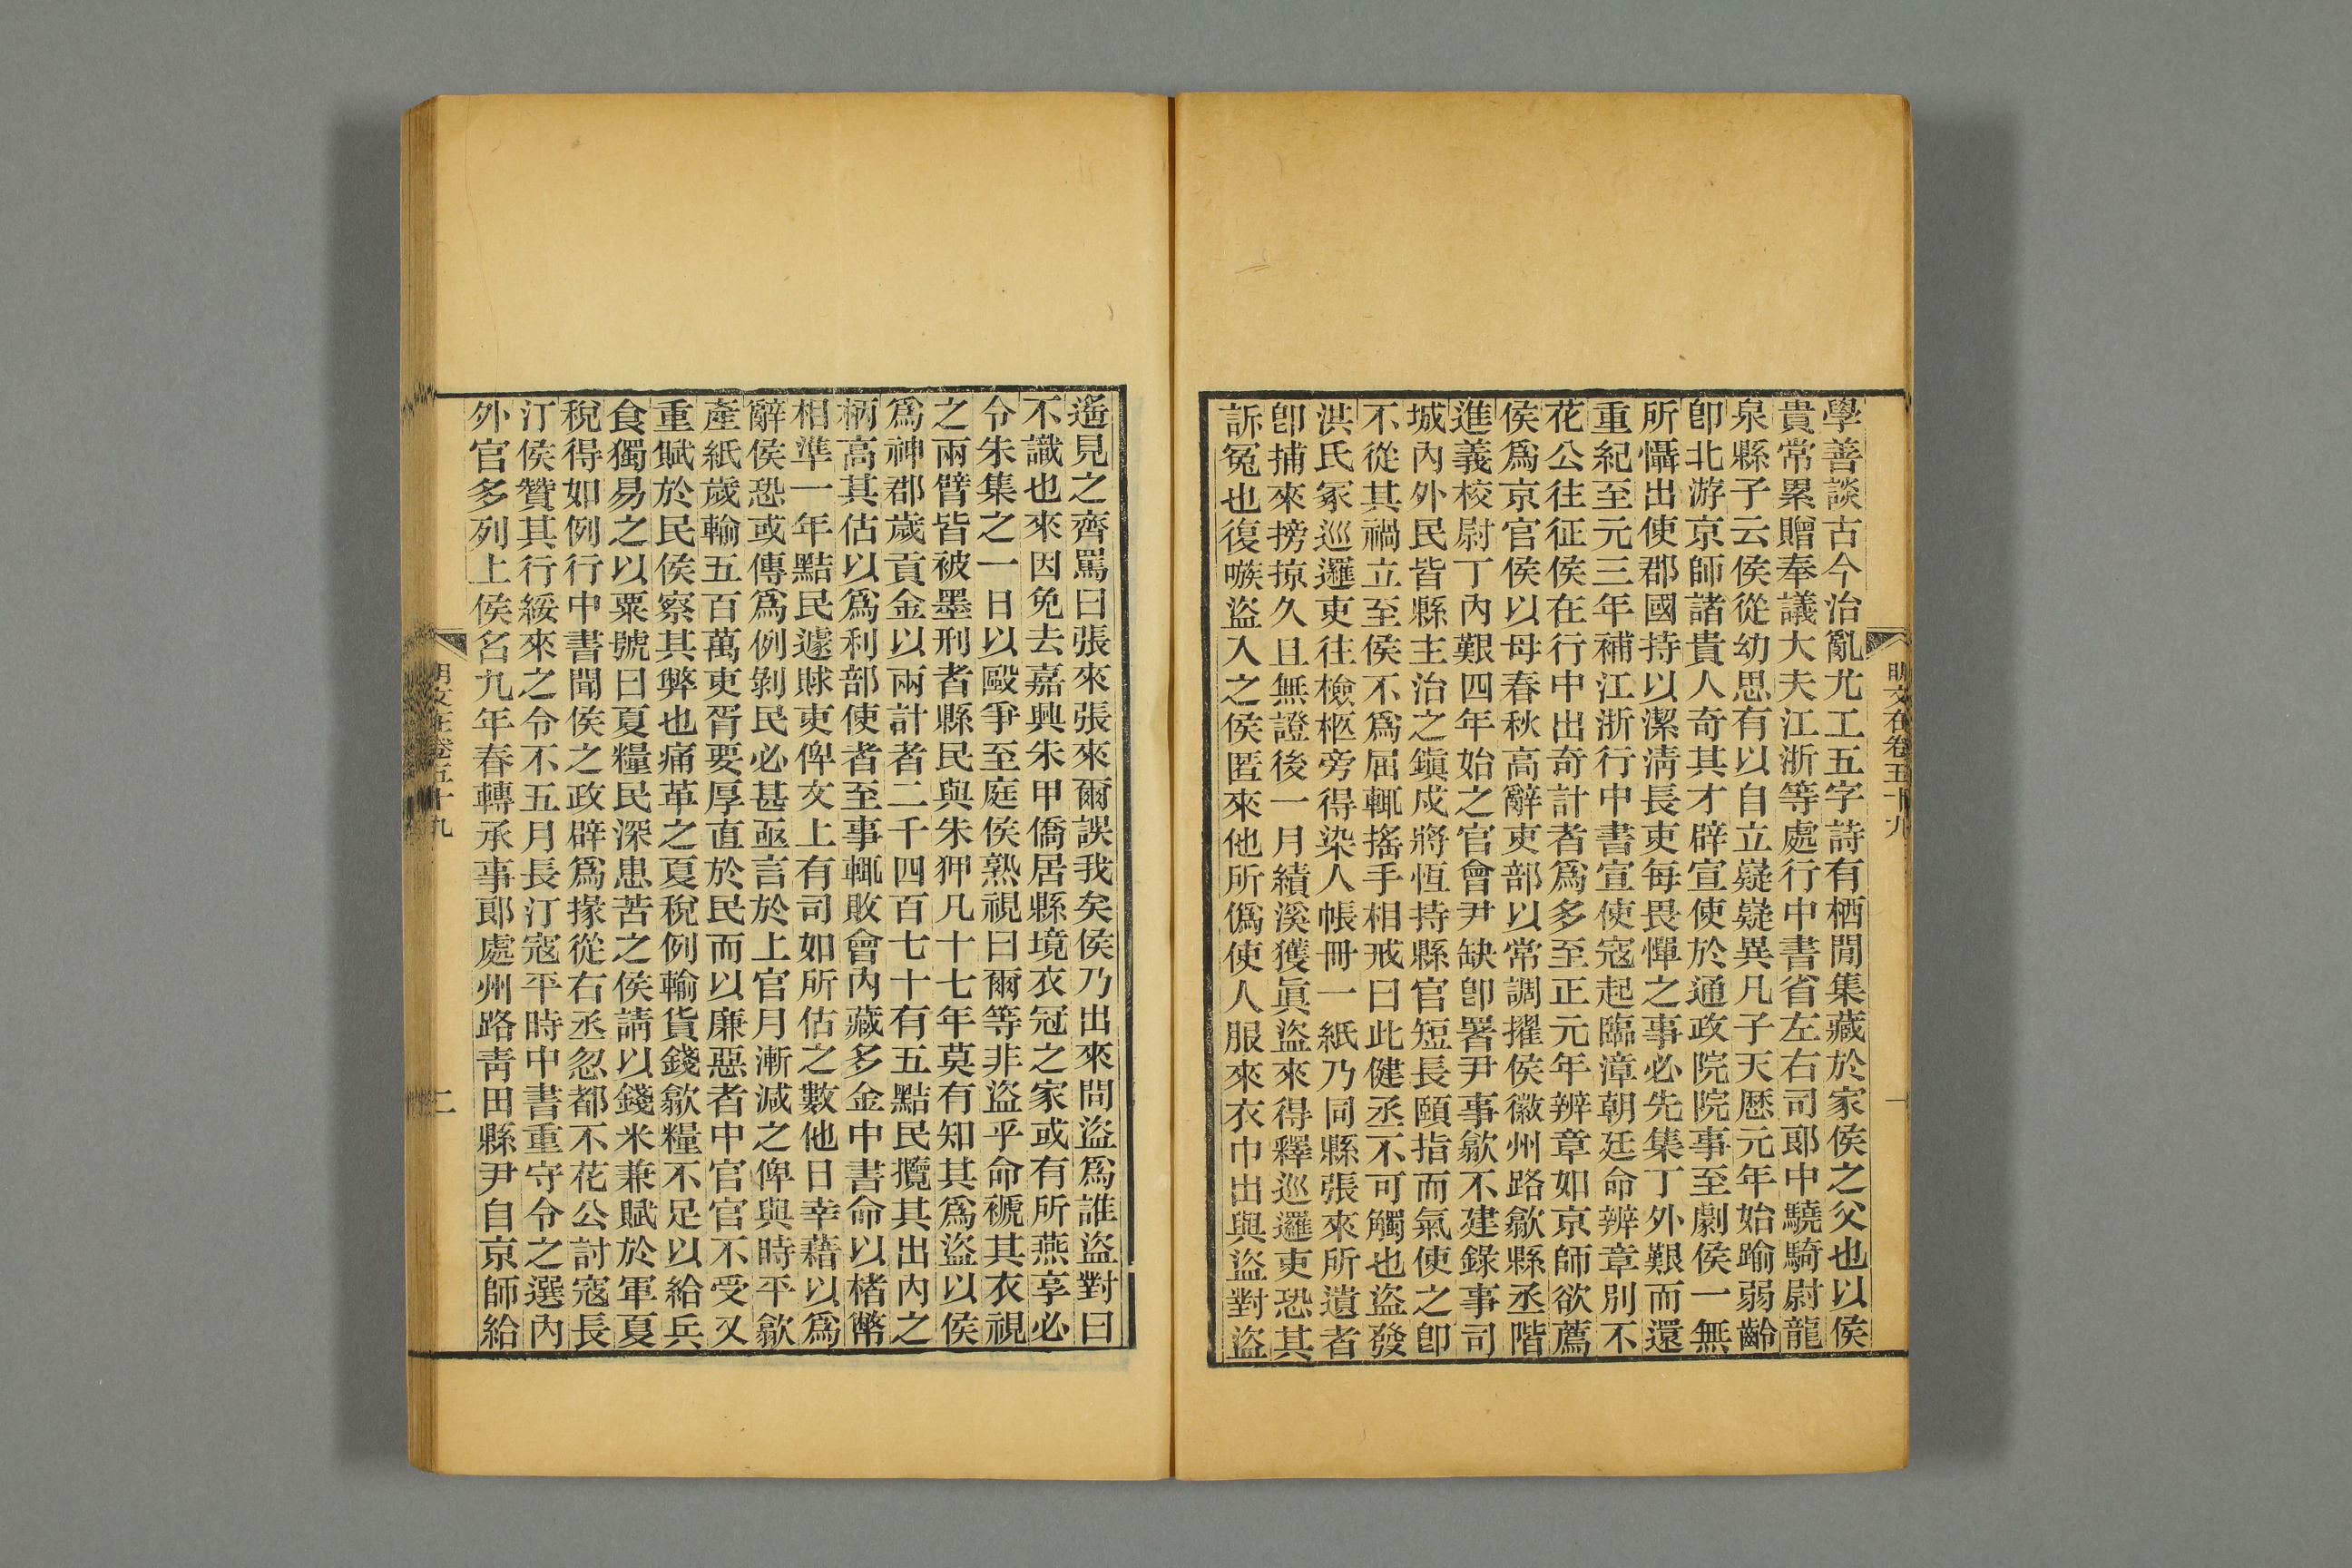 學善談古今治亂尤工五字詩有栖閒集藏於家侯之父也以侯
貴常累贈奉議大夫江浙等處行中書省左右司郎中驍騎尉龍
泉縣子云侯從幼思有以自立嶷嶷異凡子天歷元年始踰弱齡
卽北游京師諸貴人奇其才辟宣使於通政院院事至劇侯一無
所懾出使郡國持以潔淸長吏每畏憚之事必先集丁外艱而還
重紀至元三年補江浙行中書宣使寇起臨漳朝廷命辨章別不
花公往征侯在行中出奇計者爲多至正元年辨章如京師欲薦
侯爲京官侯以母春秋高辭吏部以常調擢侯徽州路歙縣丞階
進義校尉丁內艱四年始之官會尹缺卽署尹事歙不建錄事司
城內外民皆縣主治之鎭戍將恆持縣官短長頤指而氣使之卽
不從其禍立至侯不爲屈輒搖手相戒曰此健丞不可觸也盜發
洪氏冢巡邏吏往檢柩旁得染人帳冊一紙乃同縣張來所遺者
卽捕來搒掠久且無證後一月績溪獲眞盜來得釋巡邏吏恐其
訴冤也復嗾盜入之侯匿來他所僞使人服來衣巾出與盜對盜
遙見之齊罵曰張來張來爾誤我矣侯乃出來問盜爲誰盜對曰
不識也來因免去嘉興朱甲僑居縣境衣冠之家或有所燕享必
令朱集之一日以毆爭至庭侯熟視曰爾等非盜乎命褫其衣視
之兩臂皆被墨刑者縣民與朱狎凡十七年莫有知其爲盜以侯
爲神郡歲貢金以兩計者二千四百七十有五黠民攬其出內之
柄高其估以爲利部使者至事輒敗會內藏多金中書命以楮幣
相準一年黠民遽賕吏俾文上有司如所估之數他日幸藉以爲
辭侯恐或傳爲例剝民必甚亟言於上官月漸減之俾與時平歙
產紙歲輸五百萬吏胥要厚直於民而以廉惡者中官官不受又
重賦於民侯察其弊也痛革之夏稅例輸貨錢歙糧不足以給兵
食獨易之以粟號曰夏糧民深患苦之侯請以錢米兼賦於軍夏
稅得如例行中書聞侯之政辟爲掾從右丞忽都不花公討寇長
汀侯贊其行綏來之令不五月長汀寇平時中書重守令之選內
外官多列上侯名九年春轉承事郎處州路靑田縣尹自京師給
明文在卷五十九
一
明文在卷五十九
二